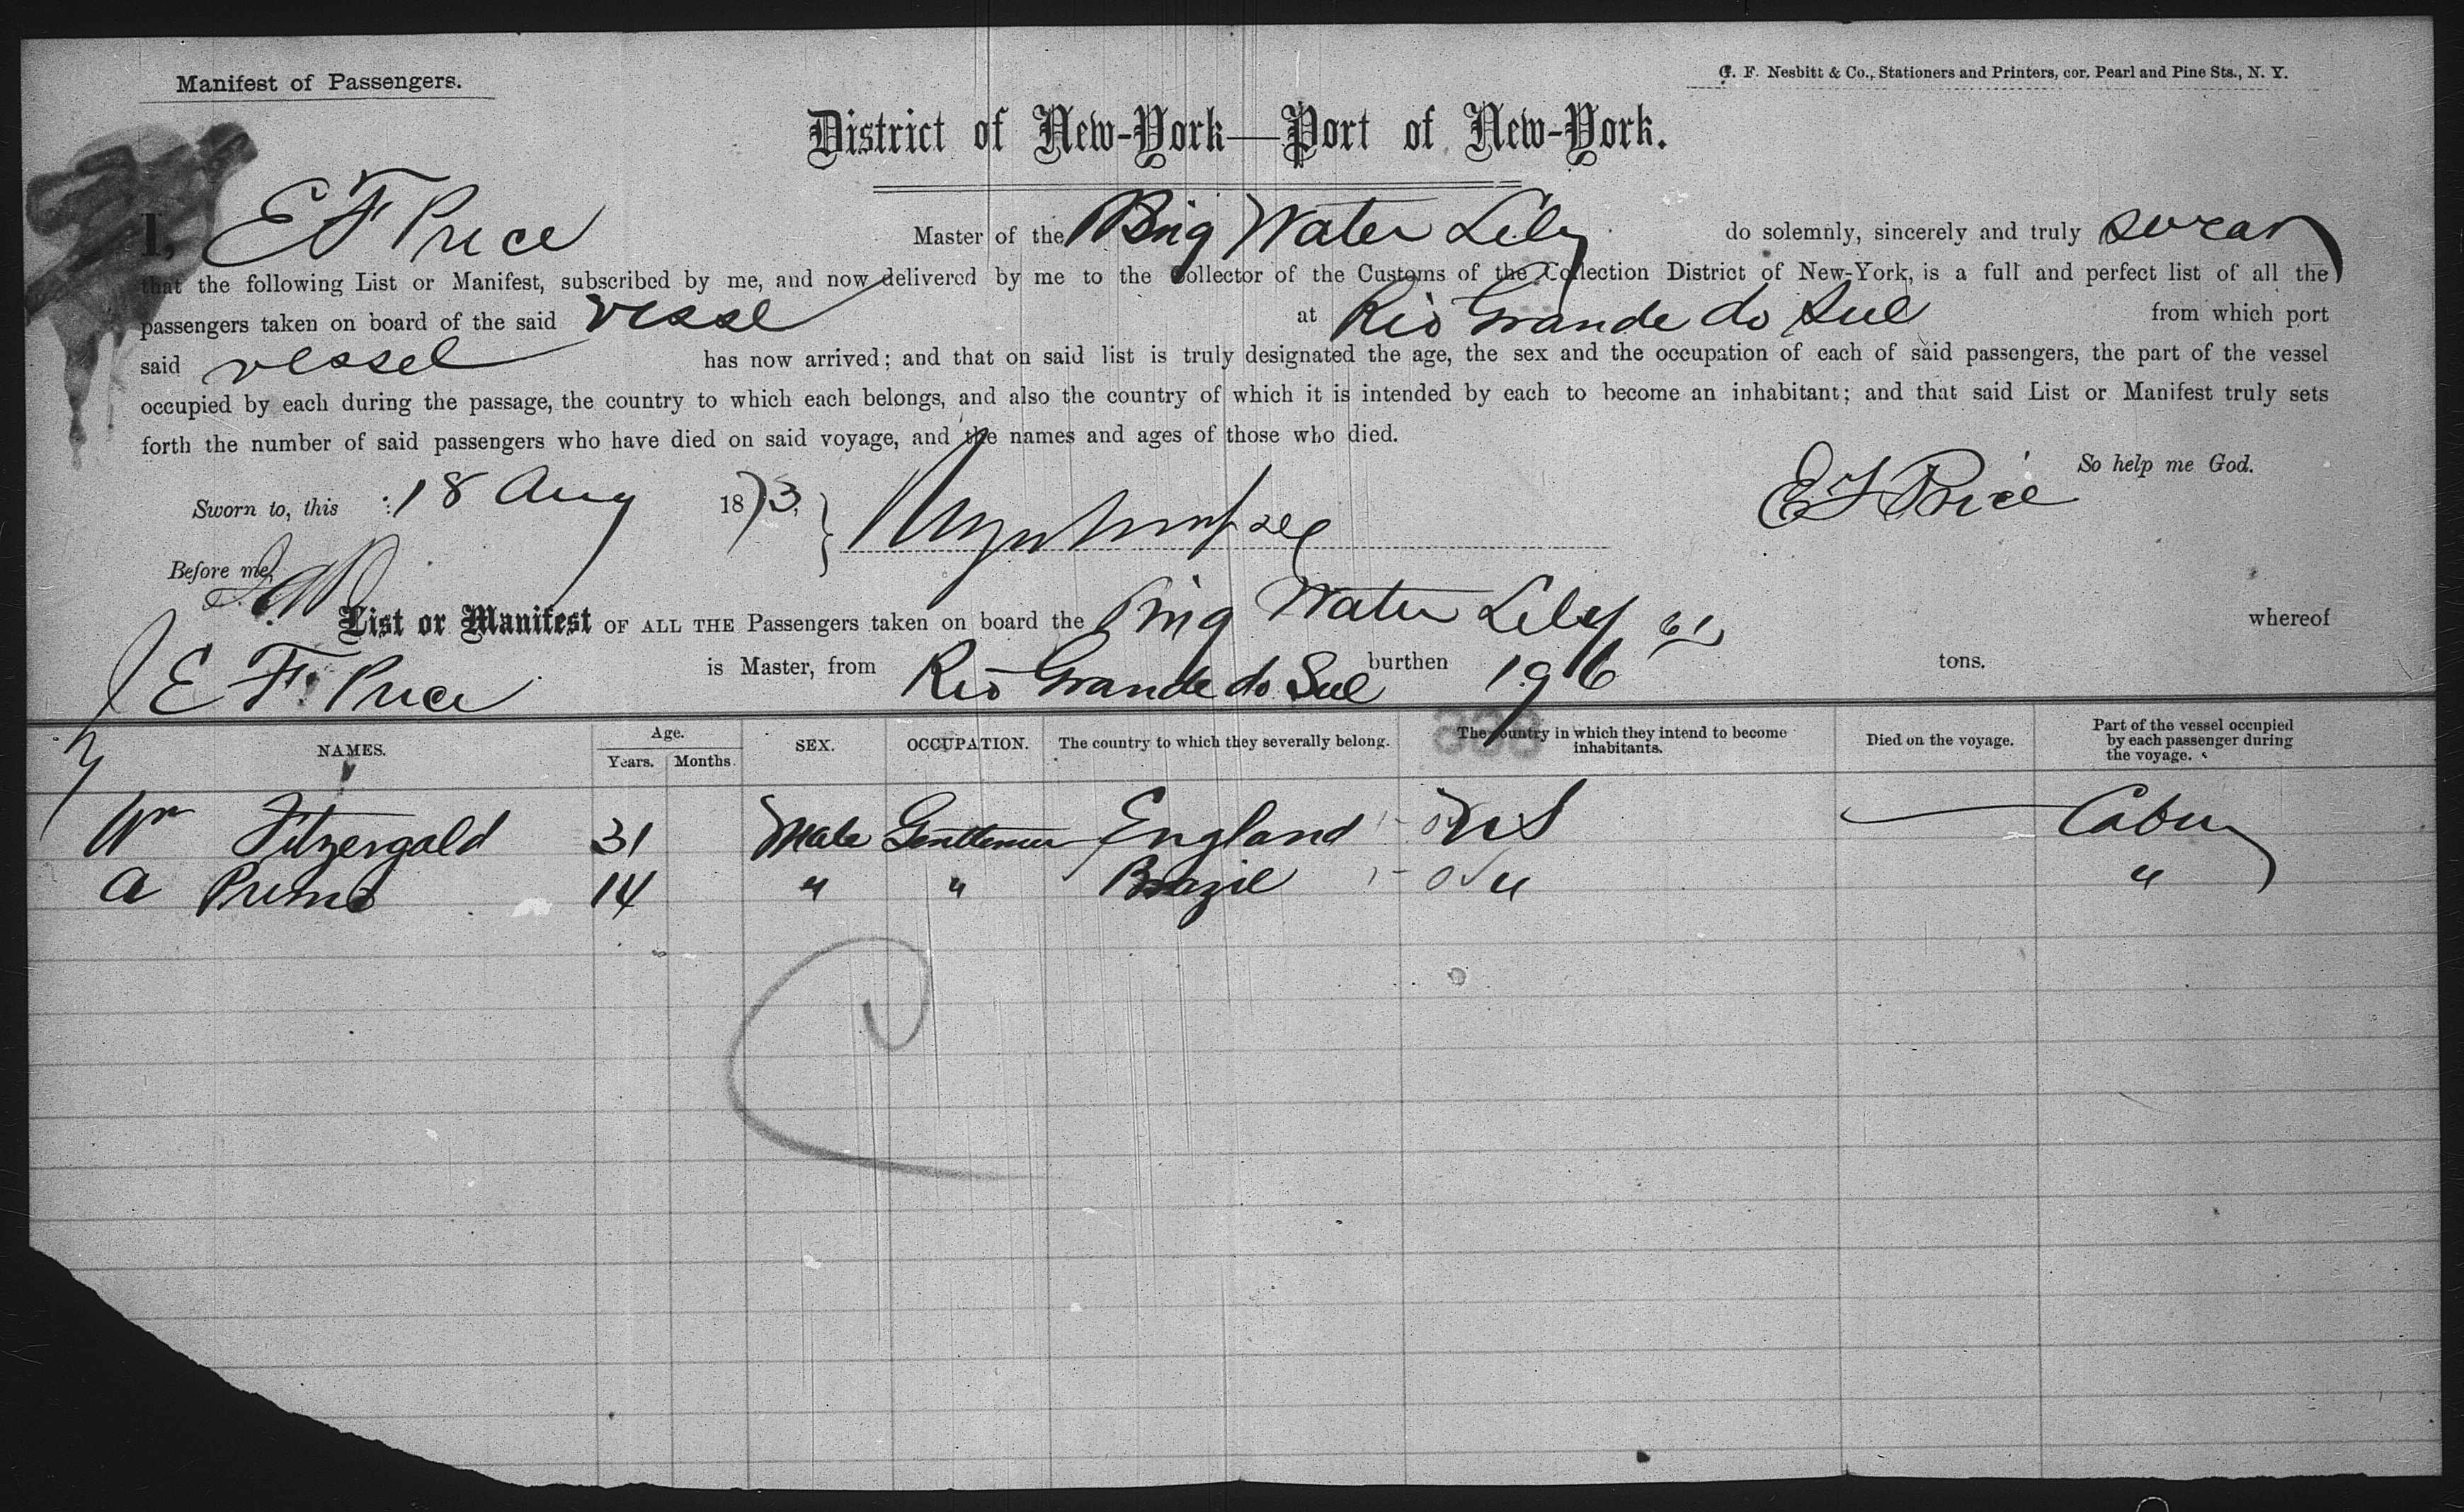 Manifest of Passengers.
G. F. Nesbitt & Co., Stationers and Printers, cor. Pearl and Pine Sts., N. Y.
District of New-York—Port of New-York.
I, E F Price Master of the Brig Water Lily do solemnly, sincerely and truly swear
that the following List or Manifest, subscribed by me, and now delivered by me to the Collector of the Customs of the Collection District of New-York, is a full and perfect list of all the
passengers taken on board of the said vessel at Rio Grande do Sul from which port
said vessel has now arrived; and that on said list is truly designated the age, the sex and the occupation of each of said passengers, the part of the vessel
occupied by each during the passage, the country to which each belongs, and also the country of which it is intended by each to become an inhabitant; and that said List or Manifest truly sets
forth the number of said passengers who have died on said voyage, and the names and ages of those who died.
So help me God.
Sworn to, this 18 Aug 1873, E F Price
Before me,
List or Manifest OF ALL THE Passengers taken on board the Brig Water Lily whereof
E F Price is Master, from Rio Grande do Sul burthen 196 61 tons.
NAMES. Age. Years. Months. SEX. OCCUPATION. The country to which they severally belong. The country in which they intend to become inhabitants. Died on the voyage. Part of the vessel occupied by each passenger during the voyage.
Wm Fitzergald 31 Male Gentleman England U S Cabin
A Primo 14 " " Brazil " "